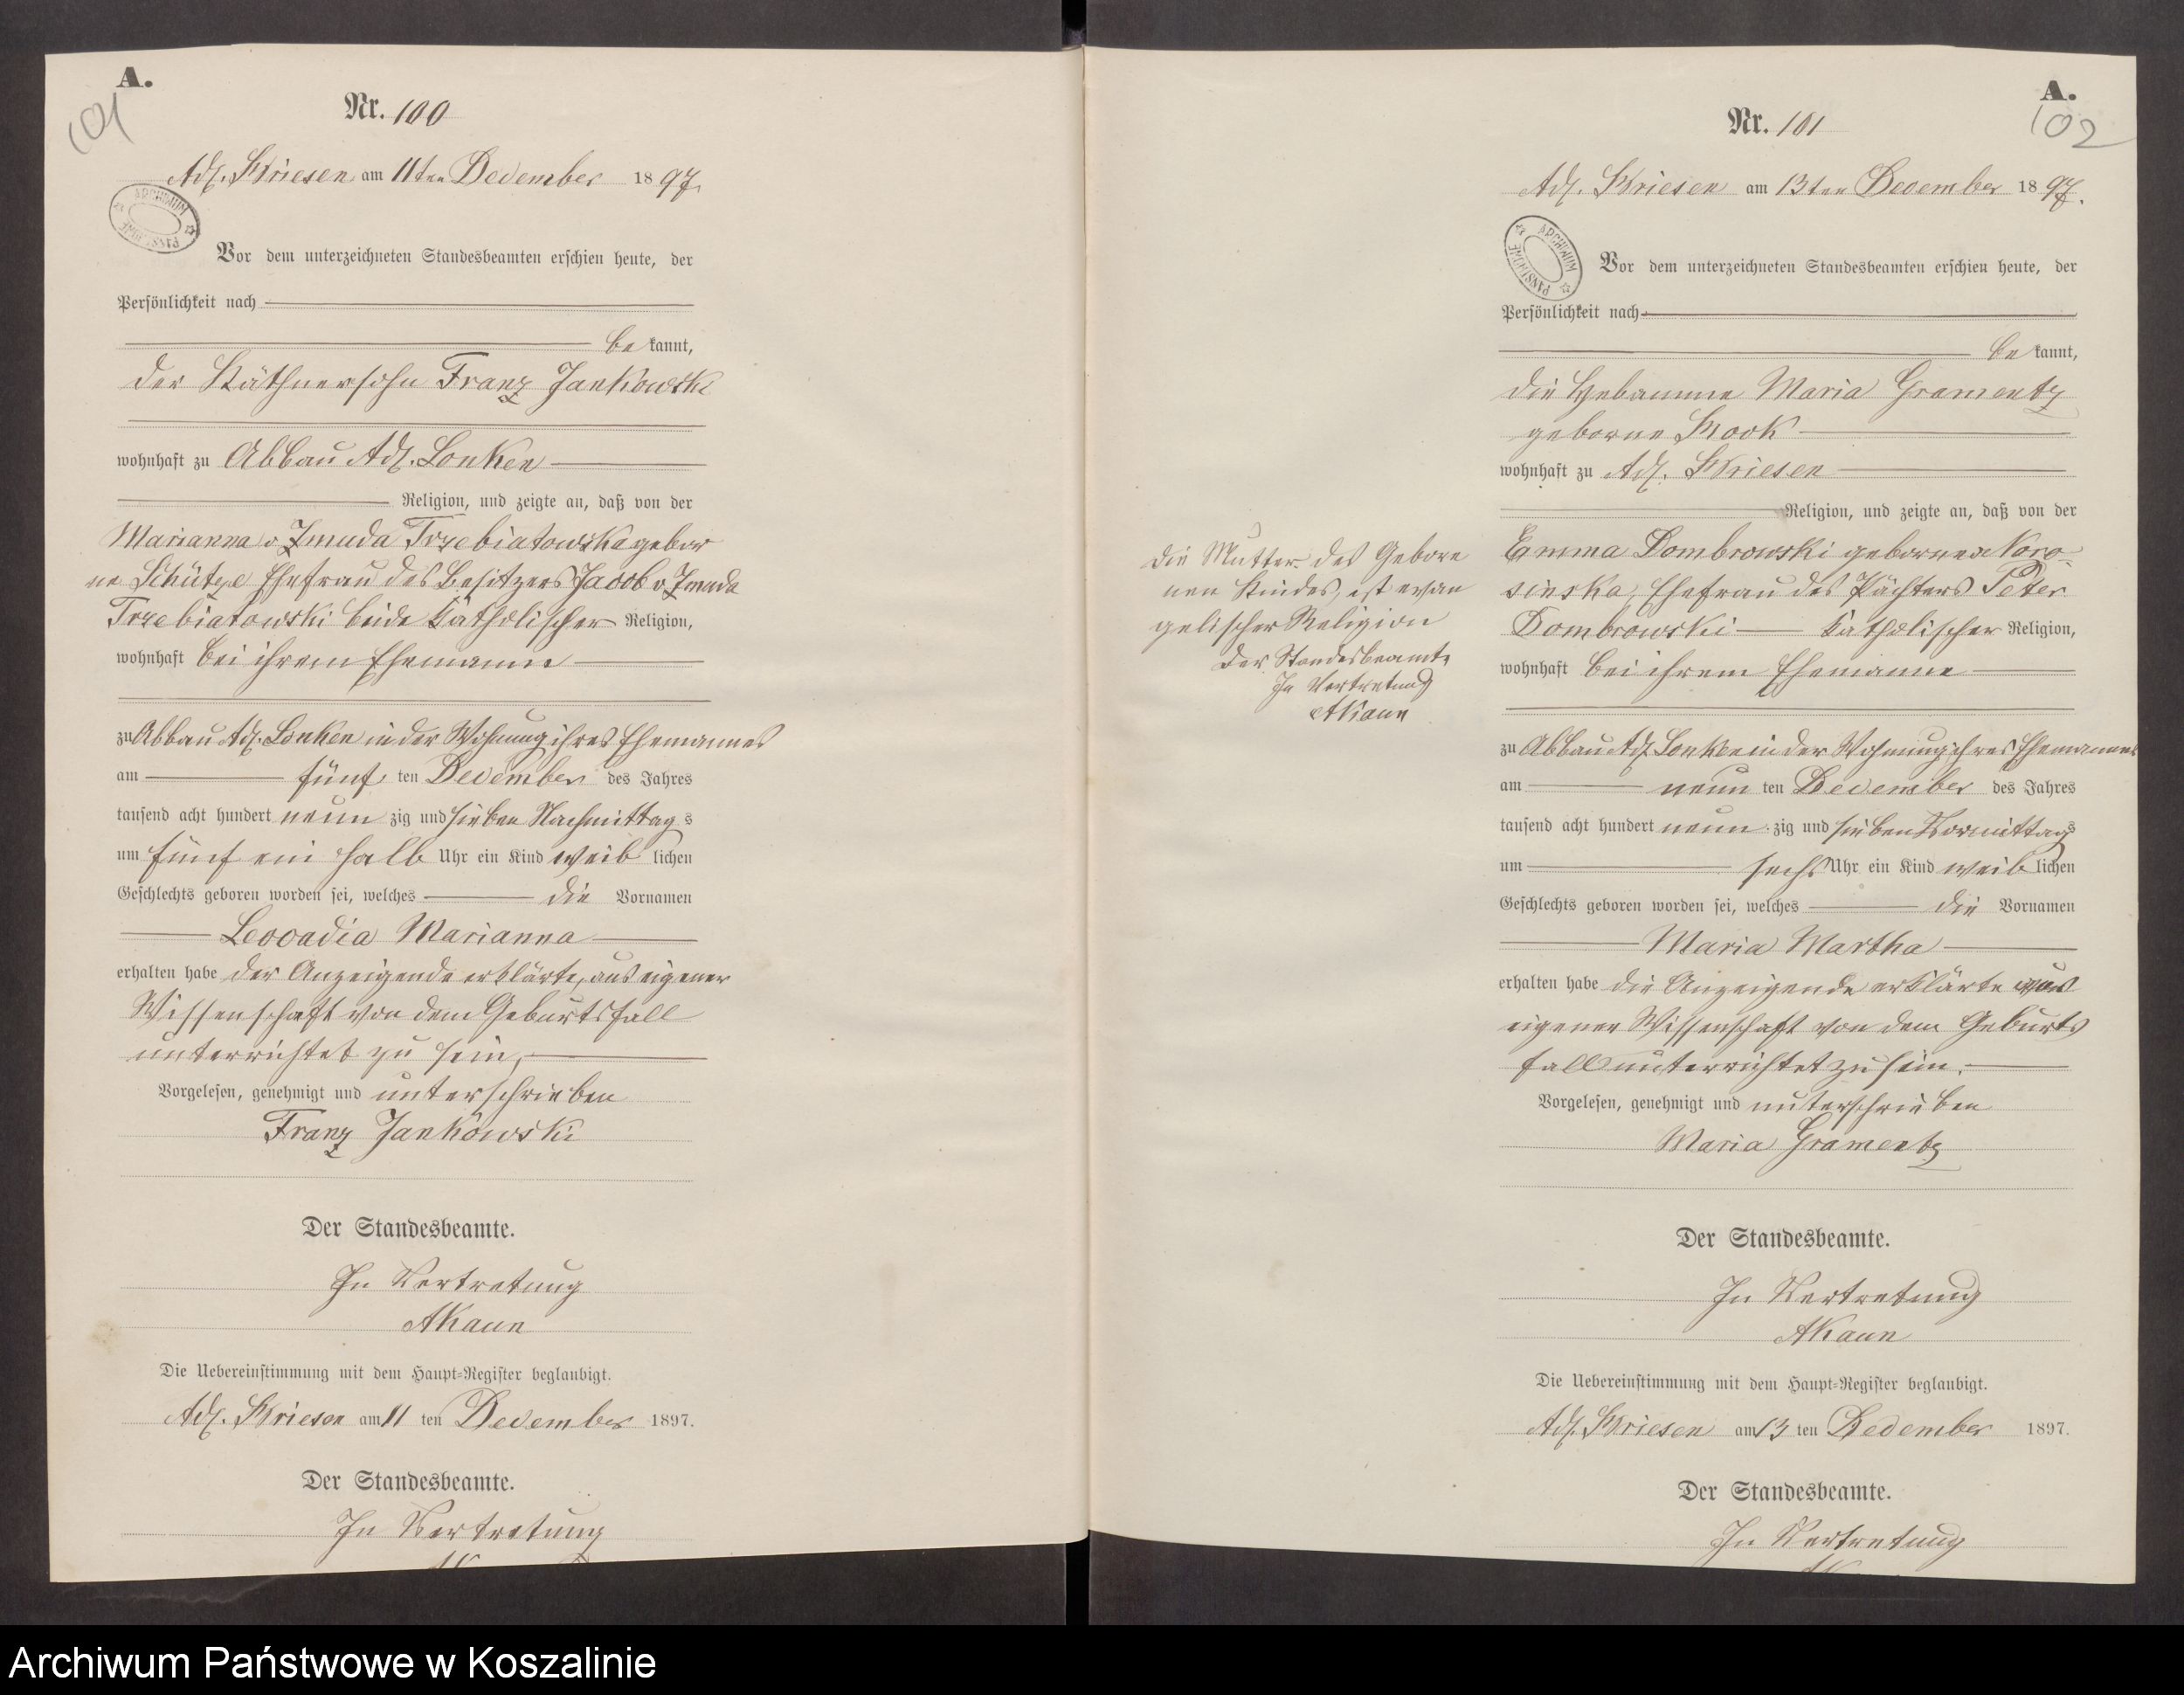 A.
101
Nr. 100
Adl. Briesen am 11ten December 1897.
ARCHIWUM PAŃSTWOWE
Vor dem unterzeichneten Standesbeamten erschien heute, der
Persönlichkeit nach
bekannt,
der Käthnersohn Franz Jankowski
wohnhaft zu Abbau Adl. Lonken
Religion, und zeigte an, daß von der
Marianna v Zmuda Trzebiatowska gebor
ne Schütze Ehefrau des Besitzers Jacob v Zmuda
Trzebiatowski beide katholischer Religion,
wohnhaft bei ihrem Ehemanne
zu Abbau Adl. Lonken in der Wohnung ihres Ehemannes
am fünf ten December des Jahres
tausend acht hundert neun zig und sieben Nachmittags
um fünf ein halb Uhr ein Kind weiblichen
Geschlechts geboren worden sei, welches die Vornamen
Leocadia Marianna
erhalten habe der Anzeigende erklärte, aus eigener
Wissenschaft von dem Geburtsfall
unterrichtet zu sein,
Vorgelesen, genehmigt und unterschrieben
Franz Jankowski
Der Standesbeamte.
In Vertretung
AKaun
Die Uebereinstimmung mit dem Haupt-Register beglaubigt.
Adl. Briesen am 11 ten December 1897.
Der Standesbeamte.
In Vertretung
A.
102
Nr. 101
Adl. Briesen am 13ten December 1897.
ARCHIWUM PAŃSTWOWE
Vor dem unterzeichneten Standesbeamten erschien heute, der
Persönlichkeit nach
bekannt,
die Hebamme Maria Gramentz
geborne Mook
wohnhaft zu Adl. Briesen
Religion, und zeigte an, daß von der
Emma Dombrowski geborne Noro-
sinska, Ehefrau des Pächters Peter
Dombrowski katholischer Religion,
wohnhaft bei ihrem Ehemanne
zu Abbau Adl. Lonken in der Wohnung ihres Ehemannes
am neun ten December des Jahres
tausend acht hundert neun zig und sieben Vormittags
um sechs Uhr ein Kind weiblichen
Geschlechts geboren worden sei, welches die Vornamen
Maria Martha
erhalten habe die Anzeigende erklärte aus
eigener Wissenschaft von dem Geburts
fall unterrichtet zu sein.
Vorgelesen, genehmigt und unterschrieben
Maria Gramentz
Der Standesbeamte.
In Vertretung
AKaun
Die Uebereinstimmung mit dem Haupt-Register beglaubigt.
Adl. Briesen am 13 ten December 1897.
Der Standesbeamte.
In Vertretung
Die Mutter des Gebore
nen Kindes, ist evan
gelischer Religion
Der Standesbeamte
In Vertretung
AKaun
Archiwum Państwowe w Koszalinie